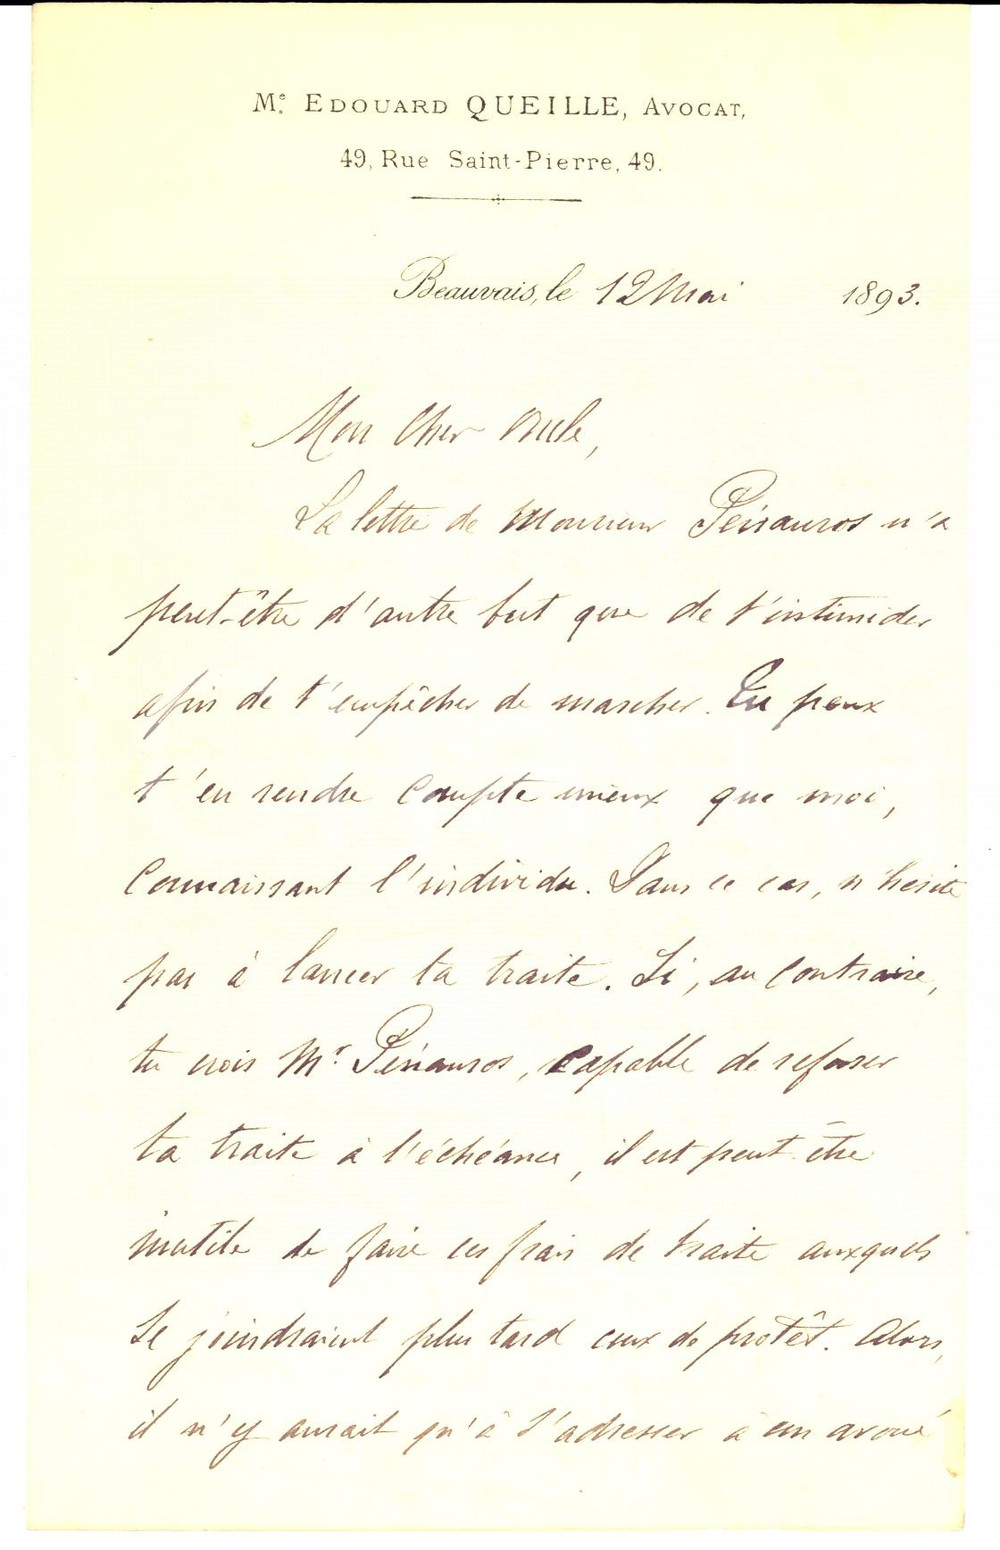 Me. EDOUARD QUEILLE, AVOCAT,
49, Rue Saint-Pierre, 49.
Beauvais, le 12 Mai 1893.
Mon Cher Oncle,
La lettre de Monsieur n'a
peut-être d'autre but que de t'intimider
afin de t'empêcher de marcher. Tu peux
t'en rendre compte mieux que moi,
connaissant l'individu. Dans ce cas, n'hésite
pas à lancer ta traite. Si, au contraire,
tu crois Mr. , capable de refuser
ta traite à l'échéance, il est peut-être
inutile de faire ces frais de traite auxquels
se joindraient plus tard ceux de protêt. Alors,
il n'y aurait qu'à s'adresser à un avoué